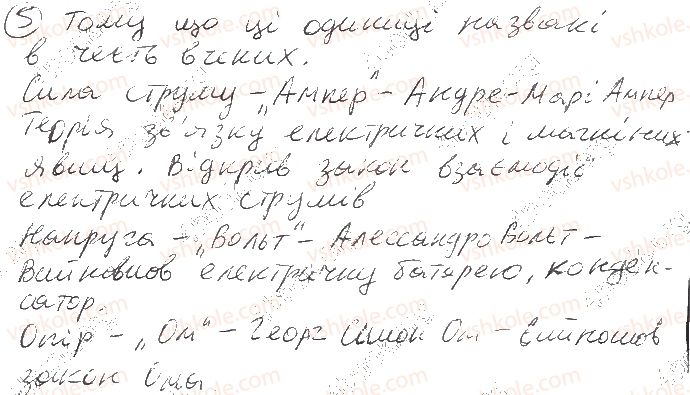 5 Тому що ці одиниці названі
в честь вчених.
Сила струму – „Ампер“ – Андре-Марі Ампер
Теорія зв'язку електричних і магнітних
явищ. Відкрив закон взаємодії
електричних струмів
Напруга – „Вольт“ – Алессандро Вольт –
Винайшов електричну батарею, конден-
сатор.
Опір – „Ом“ – Георг Симон Ом –
закон Ома.